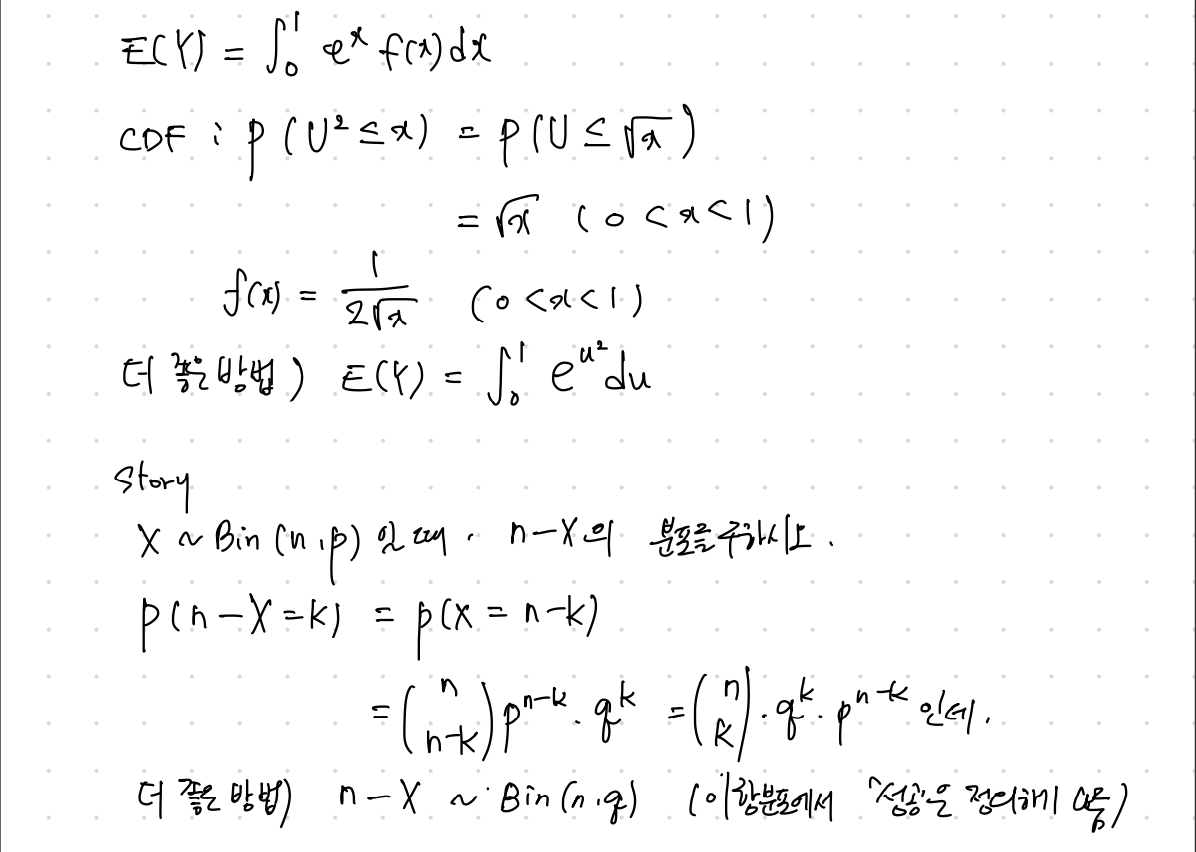 E(Y) = ∫₀¹ eˣ f(x) dx
CDF : P(U² ≤ x) = P(U ≤ √x)
= √x (0 < x < 1)
f(x) = 1/(2√x) (0 < x < 1)
더 좋은 방법) E(Y) = ∫₀¹ e^(u²) du
Story
X ~ Bin(n, p) 일 때, n-X의 분포를 구하시오.
P(n-X=k) = P(X = n-k)
= (n n-k) p^(n-k) · q^k = (n k) · q^k · p^(n-k) 인데,
더 좋은 방법) n-X ~ Bin(n, q) (이항분포에서 "성공"은 정의하기 나름)